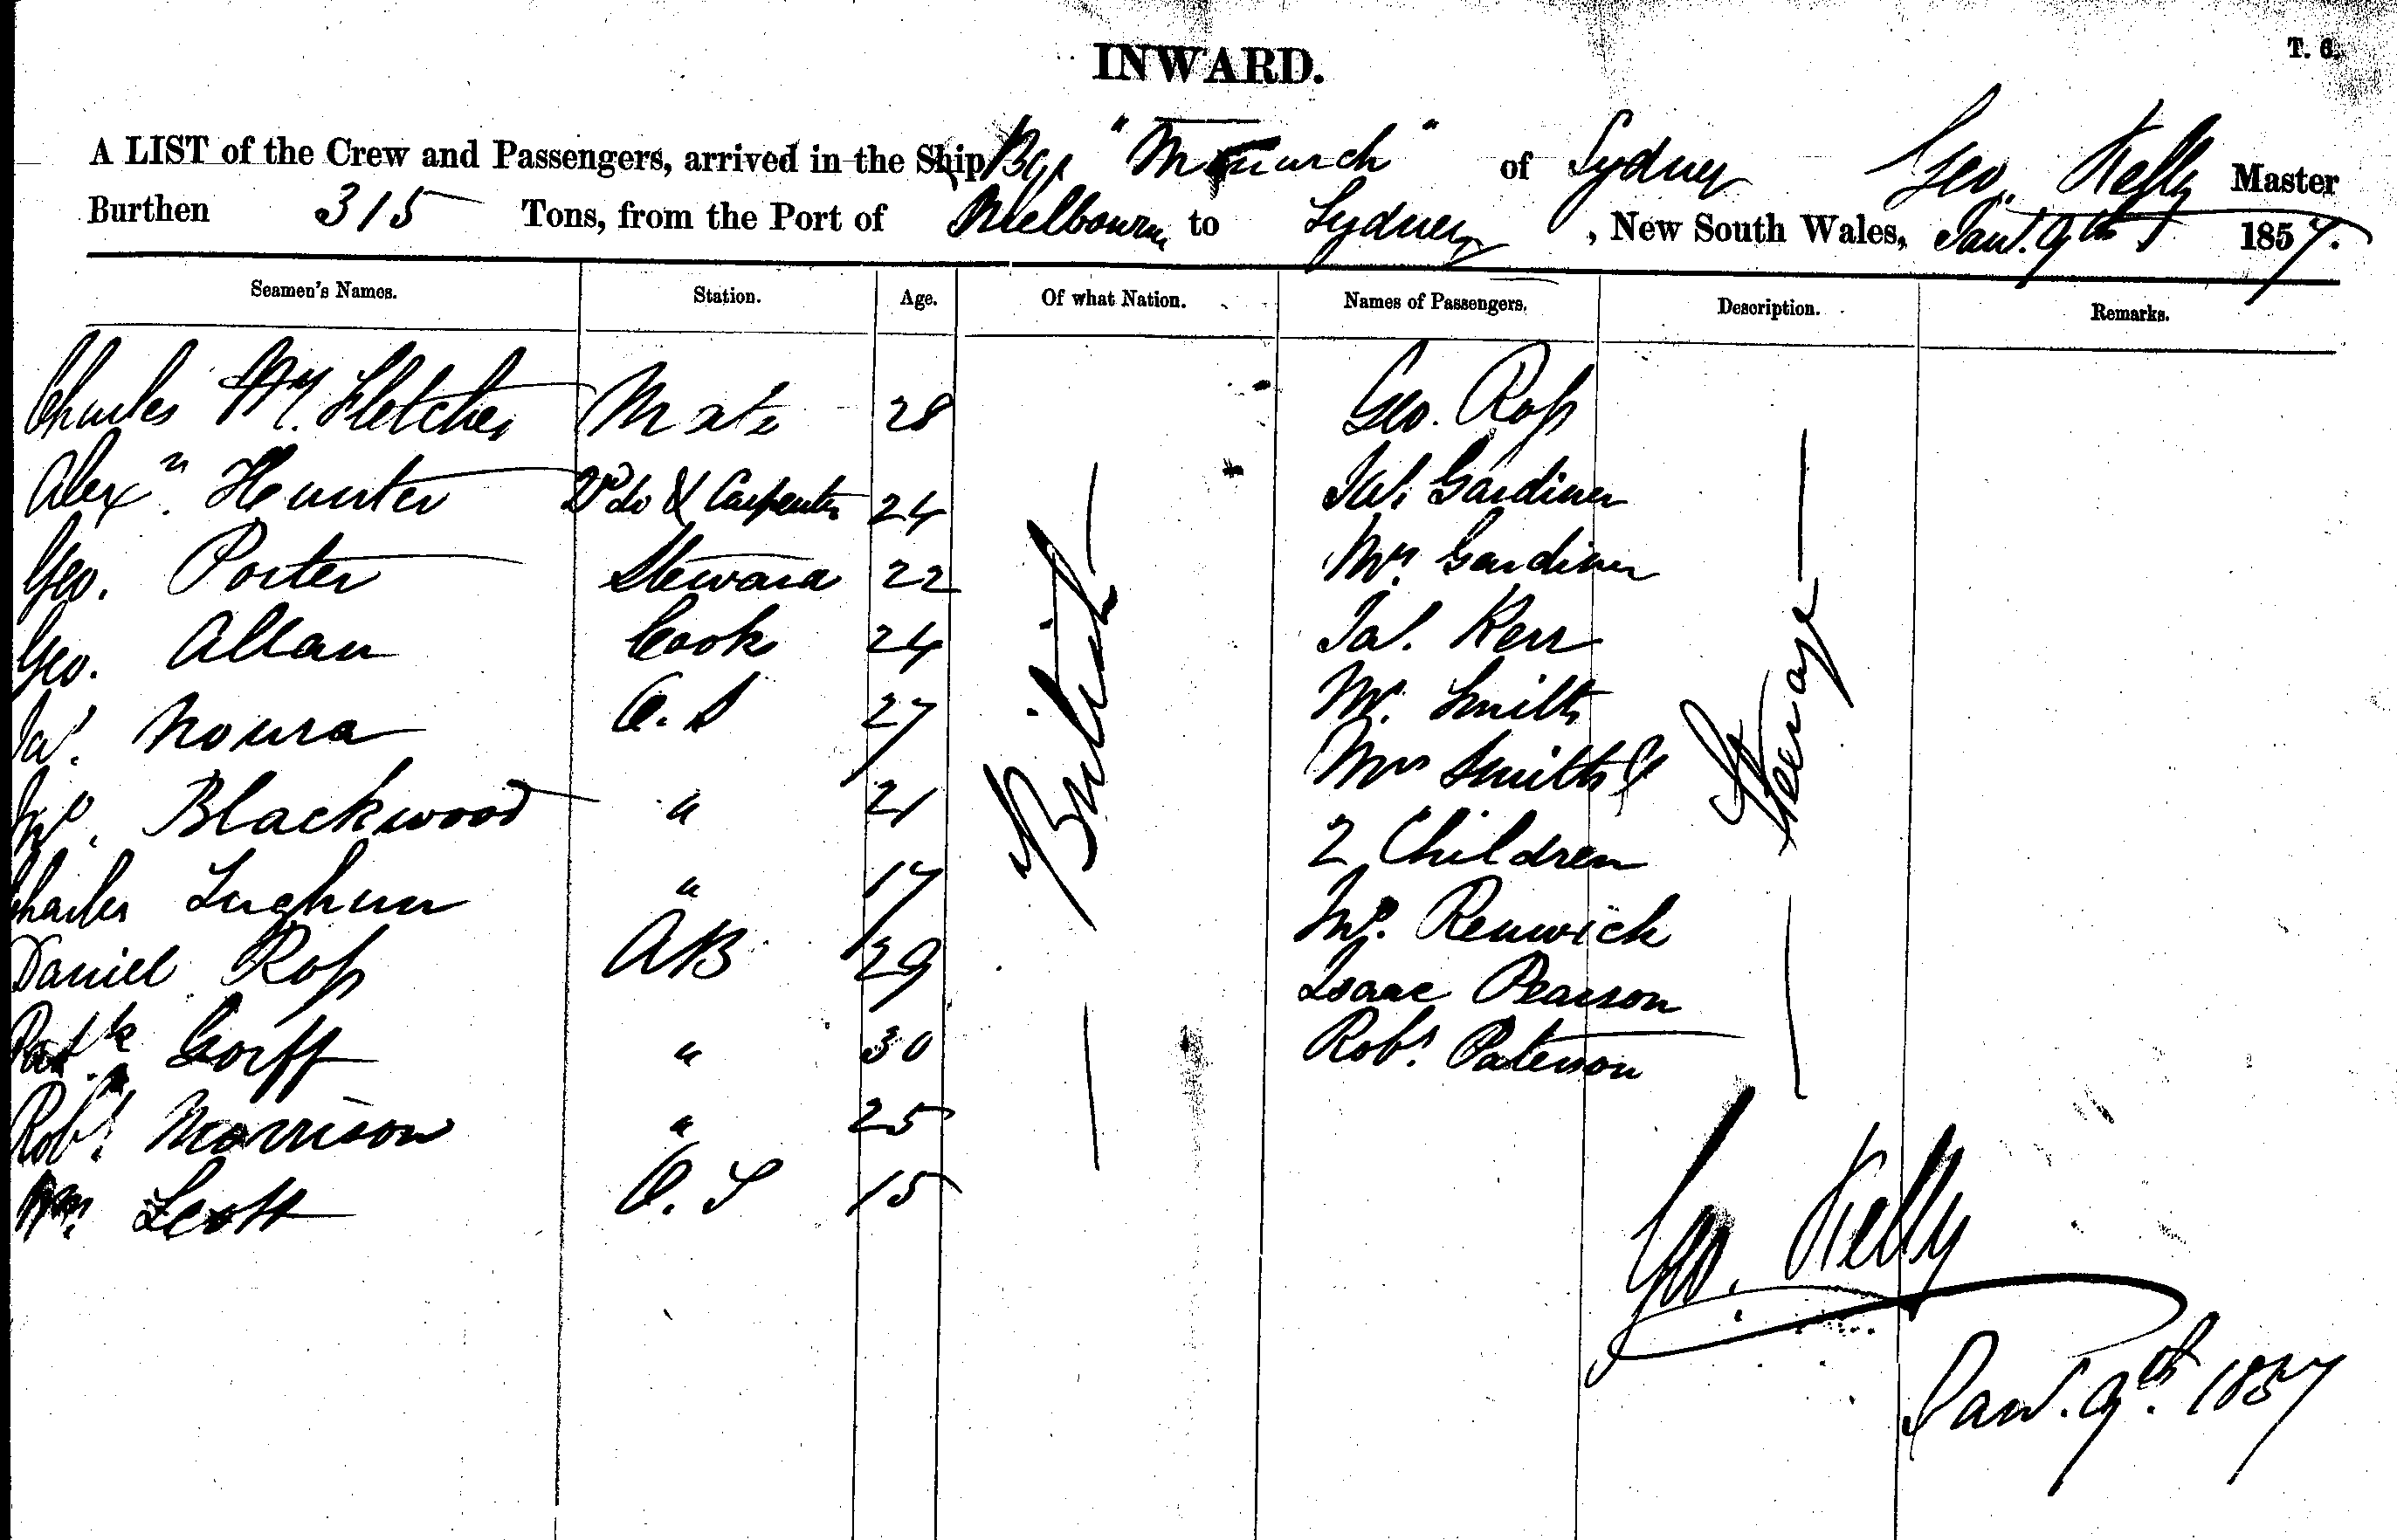 INWARD.
T. 6.
A LIST of the Crew and Passengers, arrived in the Ship Bq. "Monarch" of Sydney Geo. Kelly Master
Burthen 315 Tons, from the Port of Melbourne to Sydney, New South Wales, Jan. 9th 1857.
Seamen's Names. Station. Age. Of what Nation. Names of Passengers. Description. Remarks.
Charles M. Fletcher Mate 28 Geo. Ross
Alexr. Hunter 2nd do & Carpenter 24 Gardiner
Geo. Porter Steward 22 Mrs. Gardiner
Geo. Allan Cook 24 Jas. Kerr
Jas. O.S 27 Mr. Smith
Jno. Blackwood " 21 Mrs Smith &
Charles " 17 2 Children
Daniel Ross AB 29 Jno. Renwick
Patk. Gorff " 30 Isaac Pearson
Robt. Morrison " 25 Robt. Paterson
Wm. Scott O.S 15
British
Steerage
Geo. Kelly
Jan. 9th. 1857